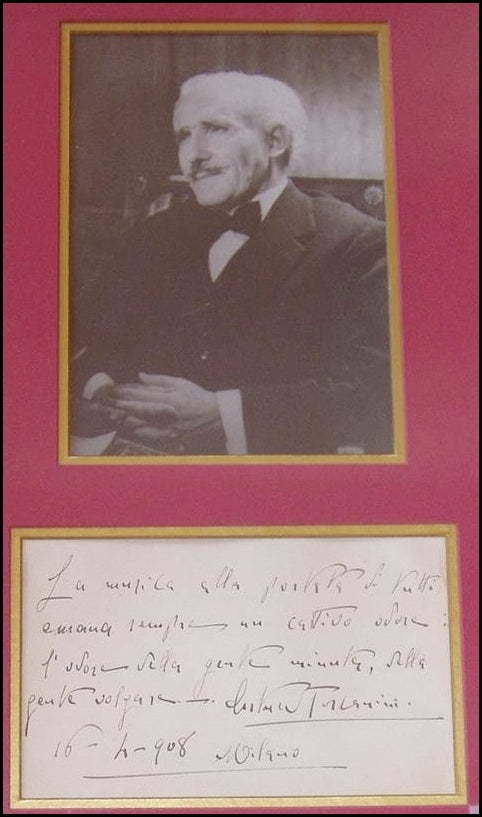 La musica alla portata di tutti
emana sempre un cattivo odore:
l'odore della gente minuta, della
gente volgare. —. Arturo Toscanini.
16 - 4 - 908 Milano